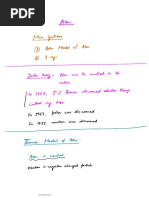 Atom
Main Syllabus
① Bohr Model of Atom
② X-ray
Dalton theory - Atom was the smallest in the
nature
In 1897, J.J Thomson discovered electron through
cathod ray tube.
In 1919, proton was discovered
In 1932, neutron was discovered.
Thomson Model of Atom
Atom is neutral
electron is negative charged particle